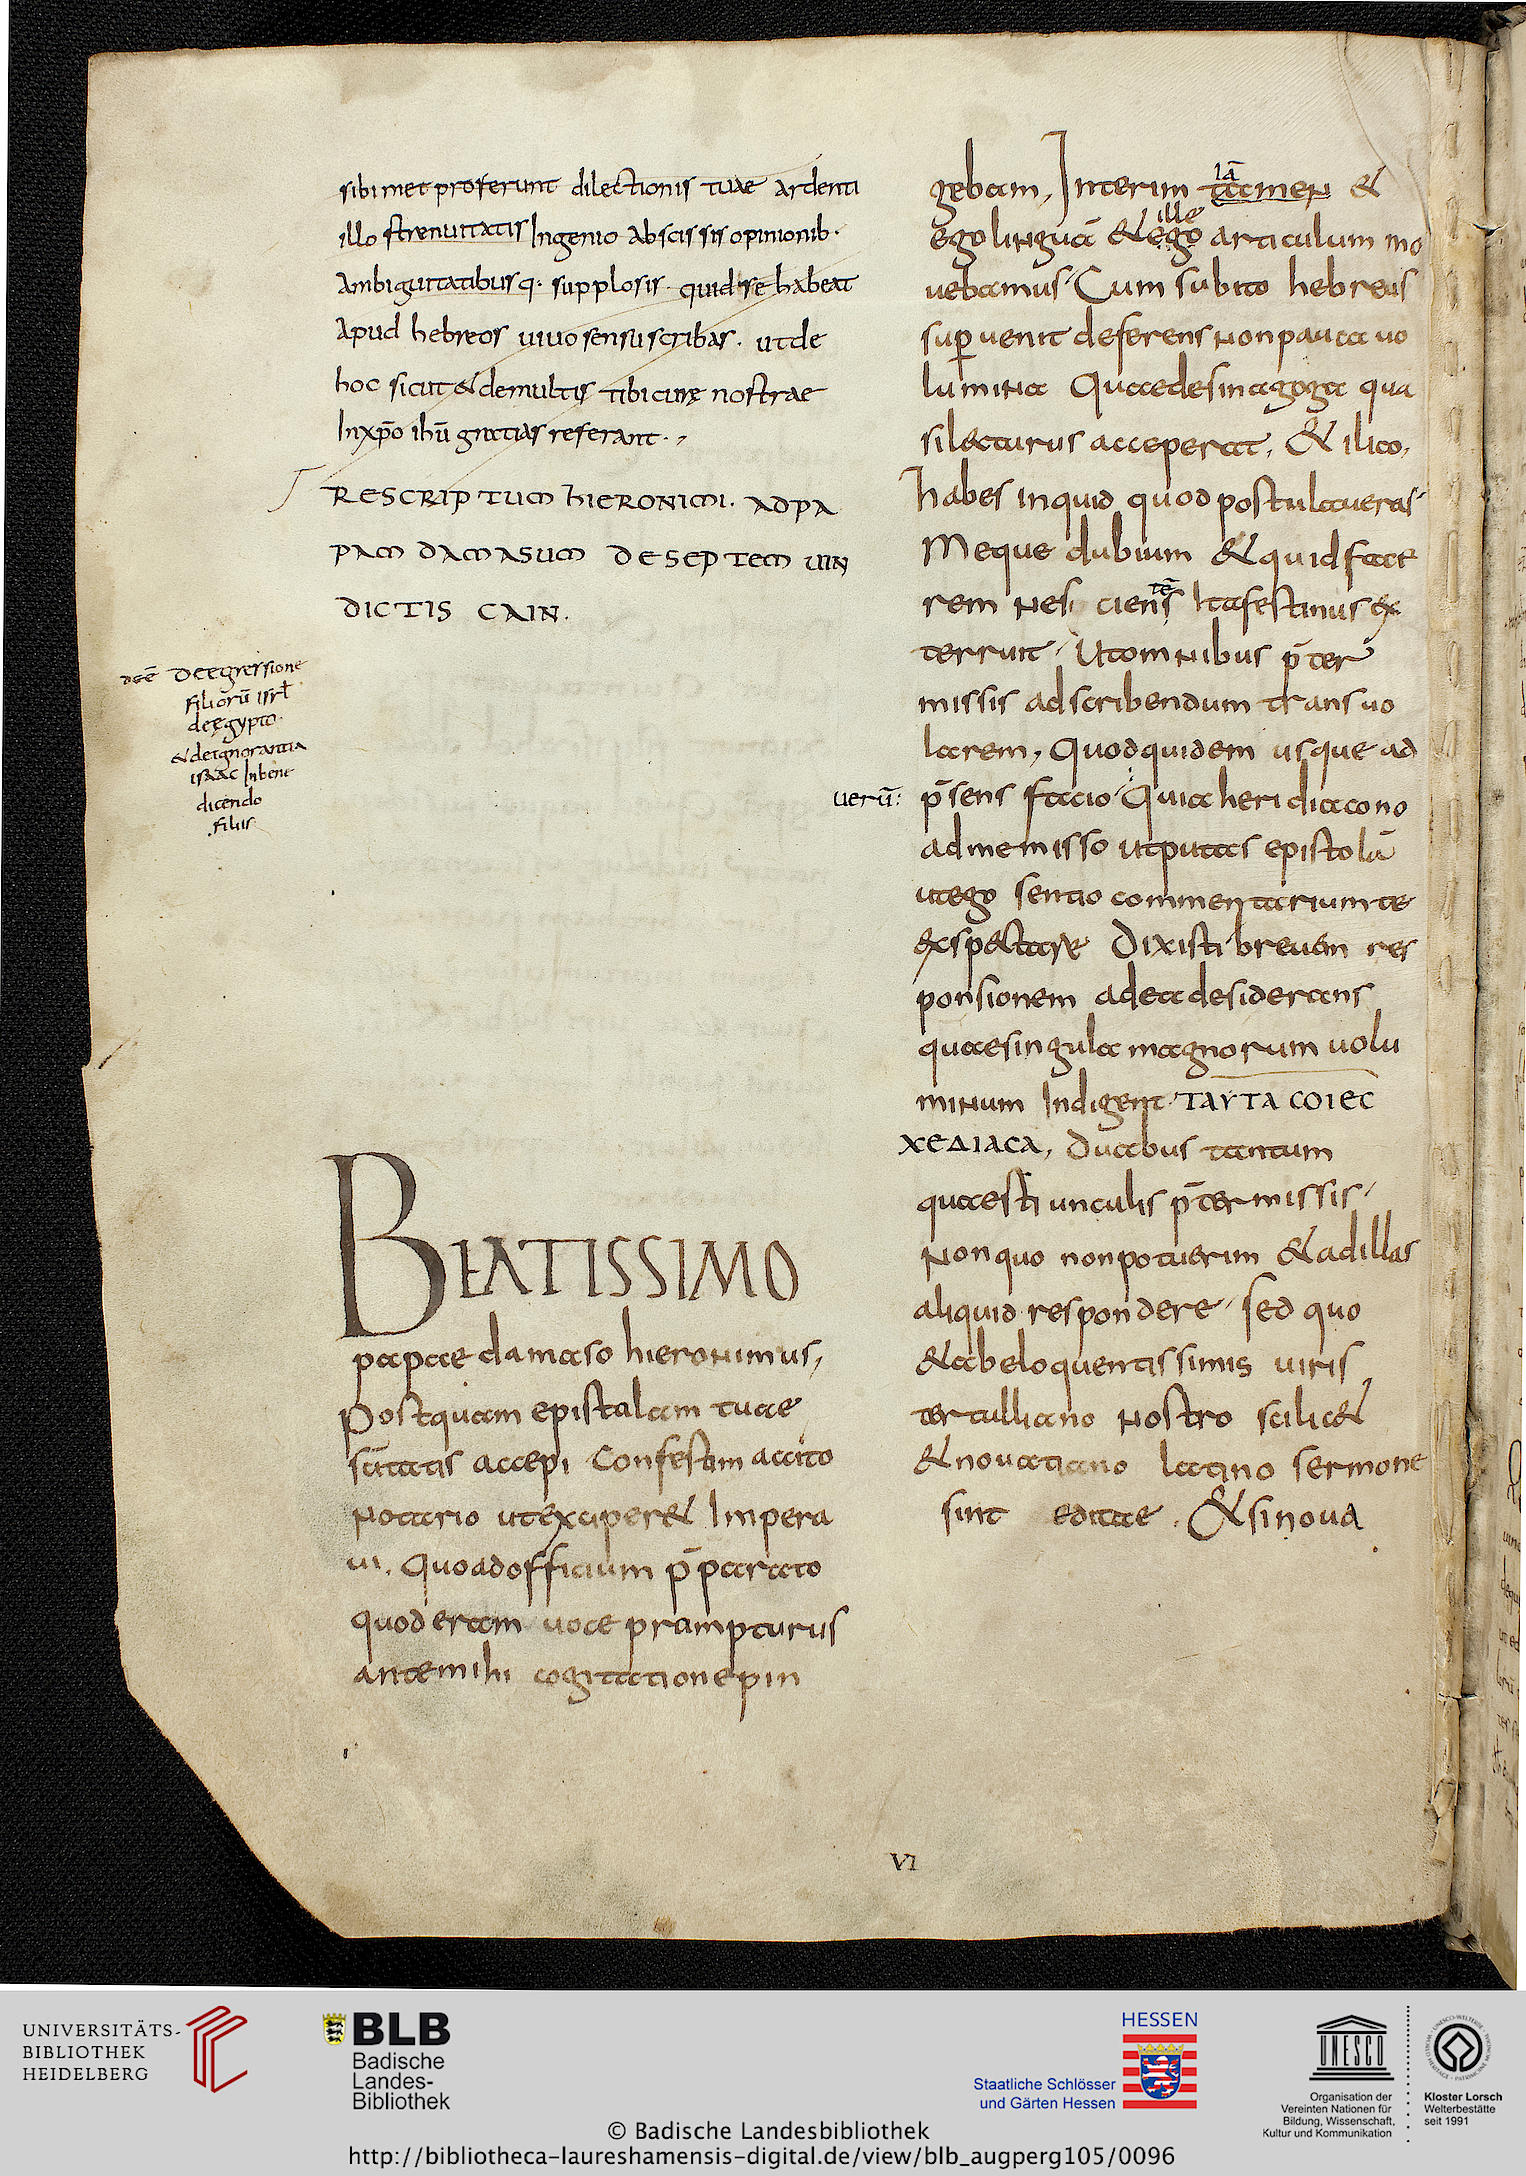 sibimet proferunt dilectionis tuae ardenti
illo strenuitatis Ingenio Abscissis opinionib·
Ambiguitatibusq· supplosis· quid se habeat
Apud hebreos uiuo sensu scribas· ut de
hoc sicut & de multis tibi curę nostrae
In xp̄o ihū gratias referant·,
RESCRIPTUM HIERONIMI· AD PA
PAM DAMASUM DE SEPTEM UIN
DICTIS CAIN·
De egressione
filiorū isrl
de ęgypto·
& de ignorantia
isaac In bene
dicendo
filiis
BEATISSIMO
papae damaso hieronimus,
Postquam epistulam tuae
sc̄itatis accepi Confestim accito
Notario ut exciper& Impera
ui. Quo ad officium p̄parato
quod eram voce prampturus
ante mihi cogitatione pin
gebam, Interim tamen &
lā
ego linguā & ego articulum mo
ille
uebamus· Cum subito hebreus
superuenit deferens non pauca uo
lumina Quae de sinagoga qua
si lecturus acceperat, & ilico,
habes inquid quod postulaueras
Meque dubium & quid face
rem Nesciens Ita festinus ex
tē
terruit· Ut omnibus p̄ter
missis ad scribendum trans uo
larem, Quod quidem usque ad
uerū:
p̄sens facio· Quia heri diacono
ad me misso ut putas epistolā
ut ego sentio commentarium te
exspectare Dixisti breuem res
ponsionem ad ea desiderans
quae singula magnorum uolu
minum Indigent· ΤΑΥΤΑ COIEC
ΧΕΔΙΑCΑ, Duabus tantum
quaestiunculis p̄termissis·
Non quo non potuerim & ad illas
aliquid respondere· sed quo
& ab eloquentissimis uiris
tertulliano nostro scilic&
& nouatiano latino sermone
sint editae. & si noua
VI
UNIVERSITÄTS-
BIBLIOTHEK
HEIDELBERG
BLB
Badische
Landes-
Bibliothek
HESSEN
Staatliche Schlösser
und Gärten Hessen
UNESCO
Organisation der
Vereinten Nationen für
Bildung, Wissenschaft,
Kultur und Kommunikation
Kloster Lorsch
Welterbestätte
seit 1991
© Badische Landesbibliothek
http://bibliotheca-laureshamensis-digital.de/view/blb_augperg105/0096